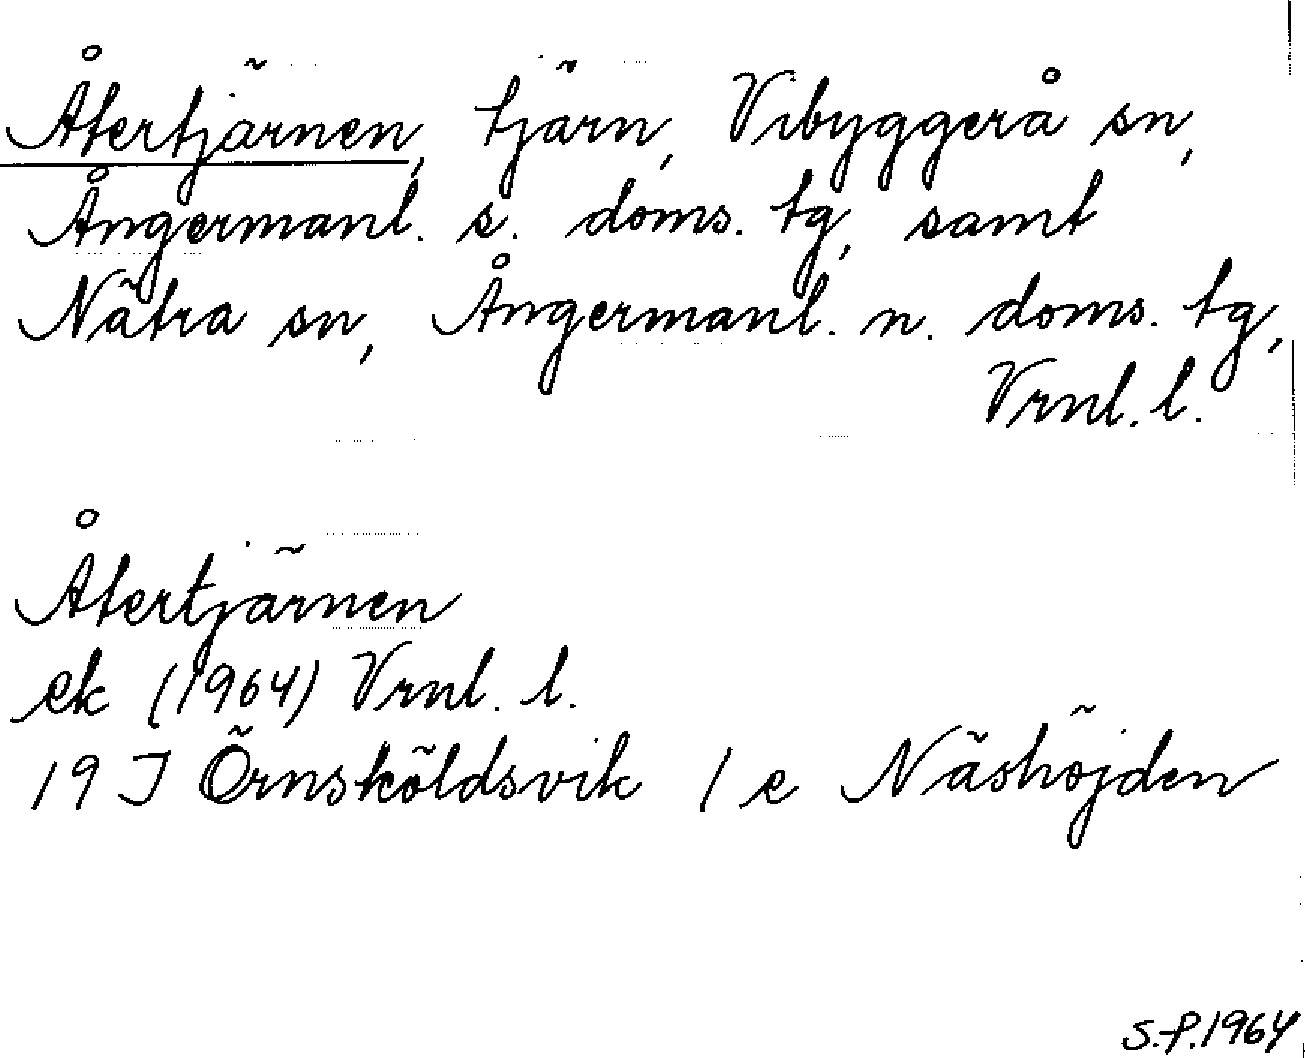 Återtjärnen, tjärn, Vibyggerå sn,
Ångermanl. s. doms. tg, samt
Nätra sn, Ångermanl. n. doms. tg,
Vrnl. l.
Återtjärnen
ek (1964) Vrnl. l.
19 I Örnsköldsvik 1 e Näshöjden
S.P. 1964